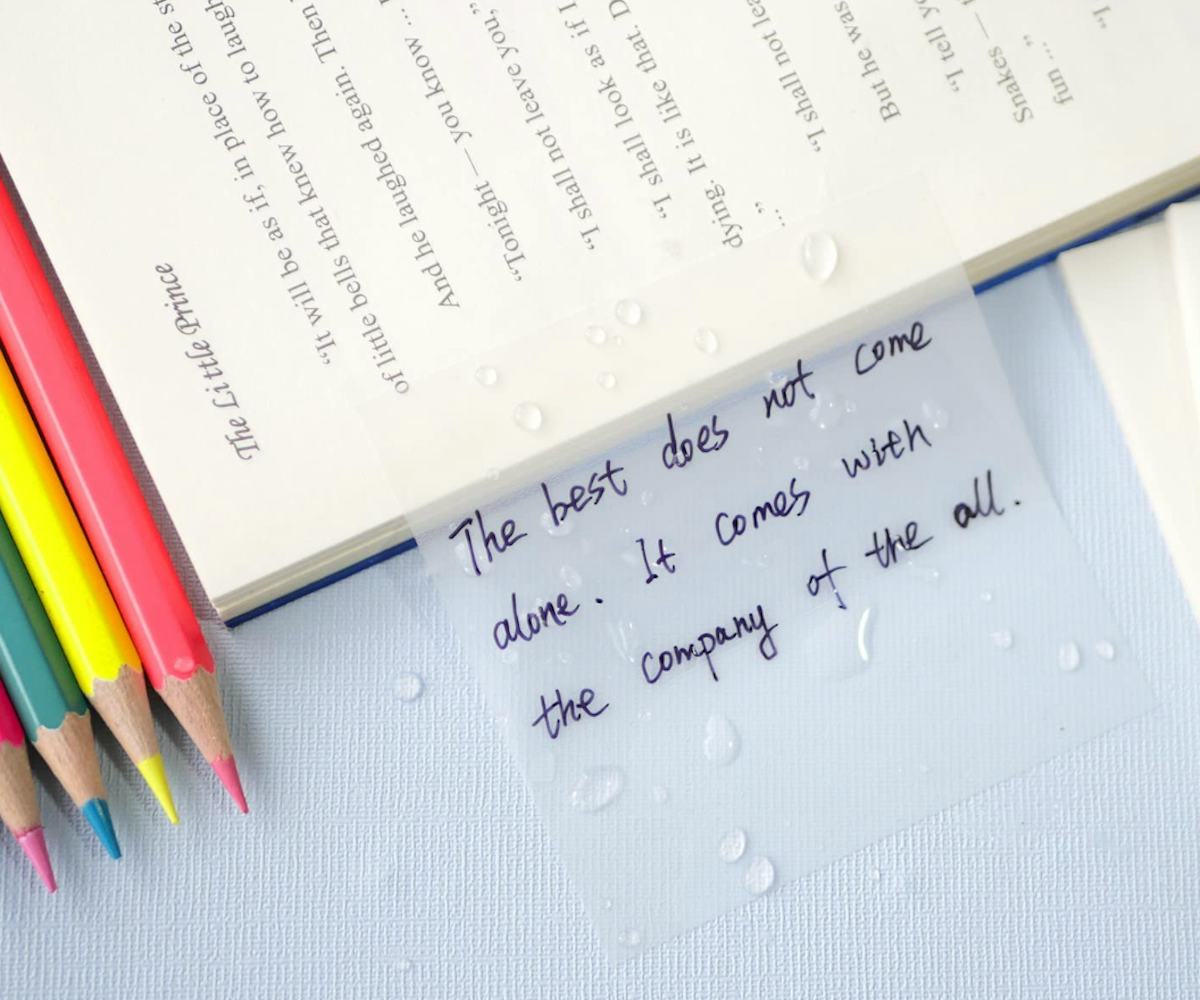 The Little Prince
"It will be as if, in place of the
of little bells that knew how to laugh
And he laughed again. Then
"Tonight — you know ...
"I shall not leave you,"
"I shall look as if I
dying. It is like that.
..."
"I shall not
But he was
"I tell
Snakes —
fun ..."
"I
The best does not come
alone. It comes with
the company of the all.